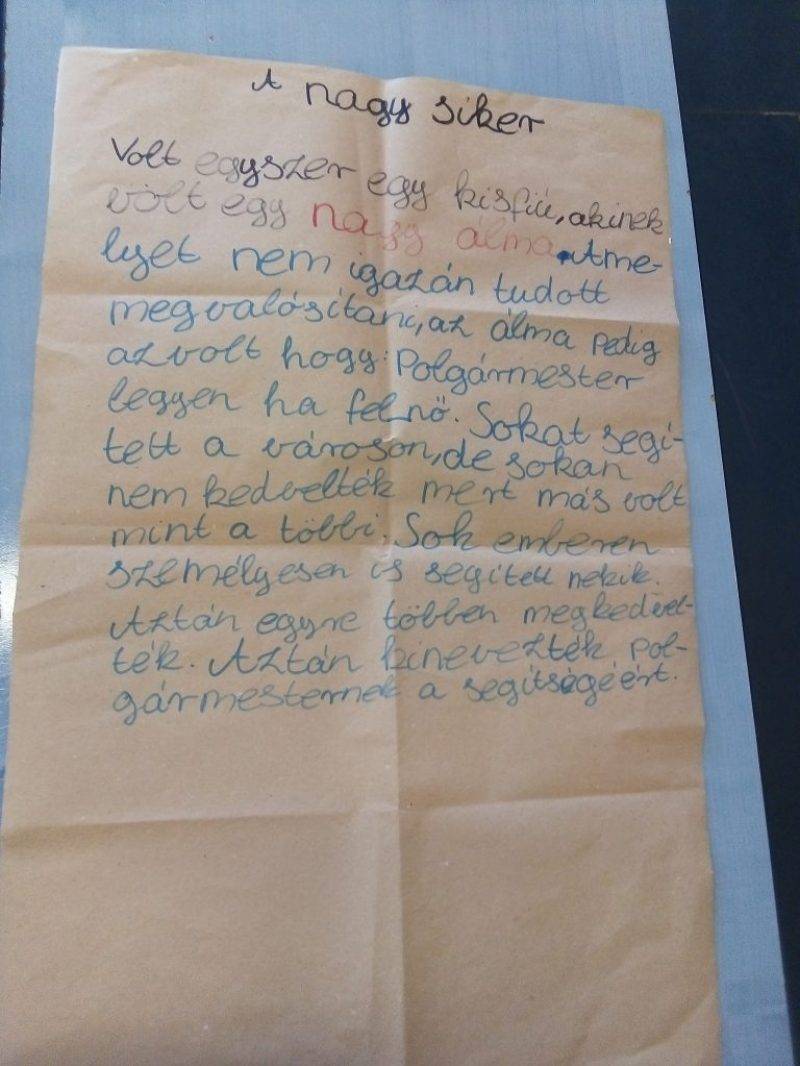 A nagy siker
Volt egyszer egy kisfiú, akinek
vólt egy nagy álma. Ame-
lyet nem igazán tudott
megvalósítani, az álma pedig
az volt hogy: Polgármester
legyen ha felnő. Sokat segí-
tett a városon, de sokan
nem kedvelték mert más volt
mint a többi. Sok emberen
személyesen is segített nekik.
Aztán egyre többen megkedvel-
ték. Aztán kinevezték pol-
gármesternek a segítségéért.